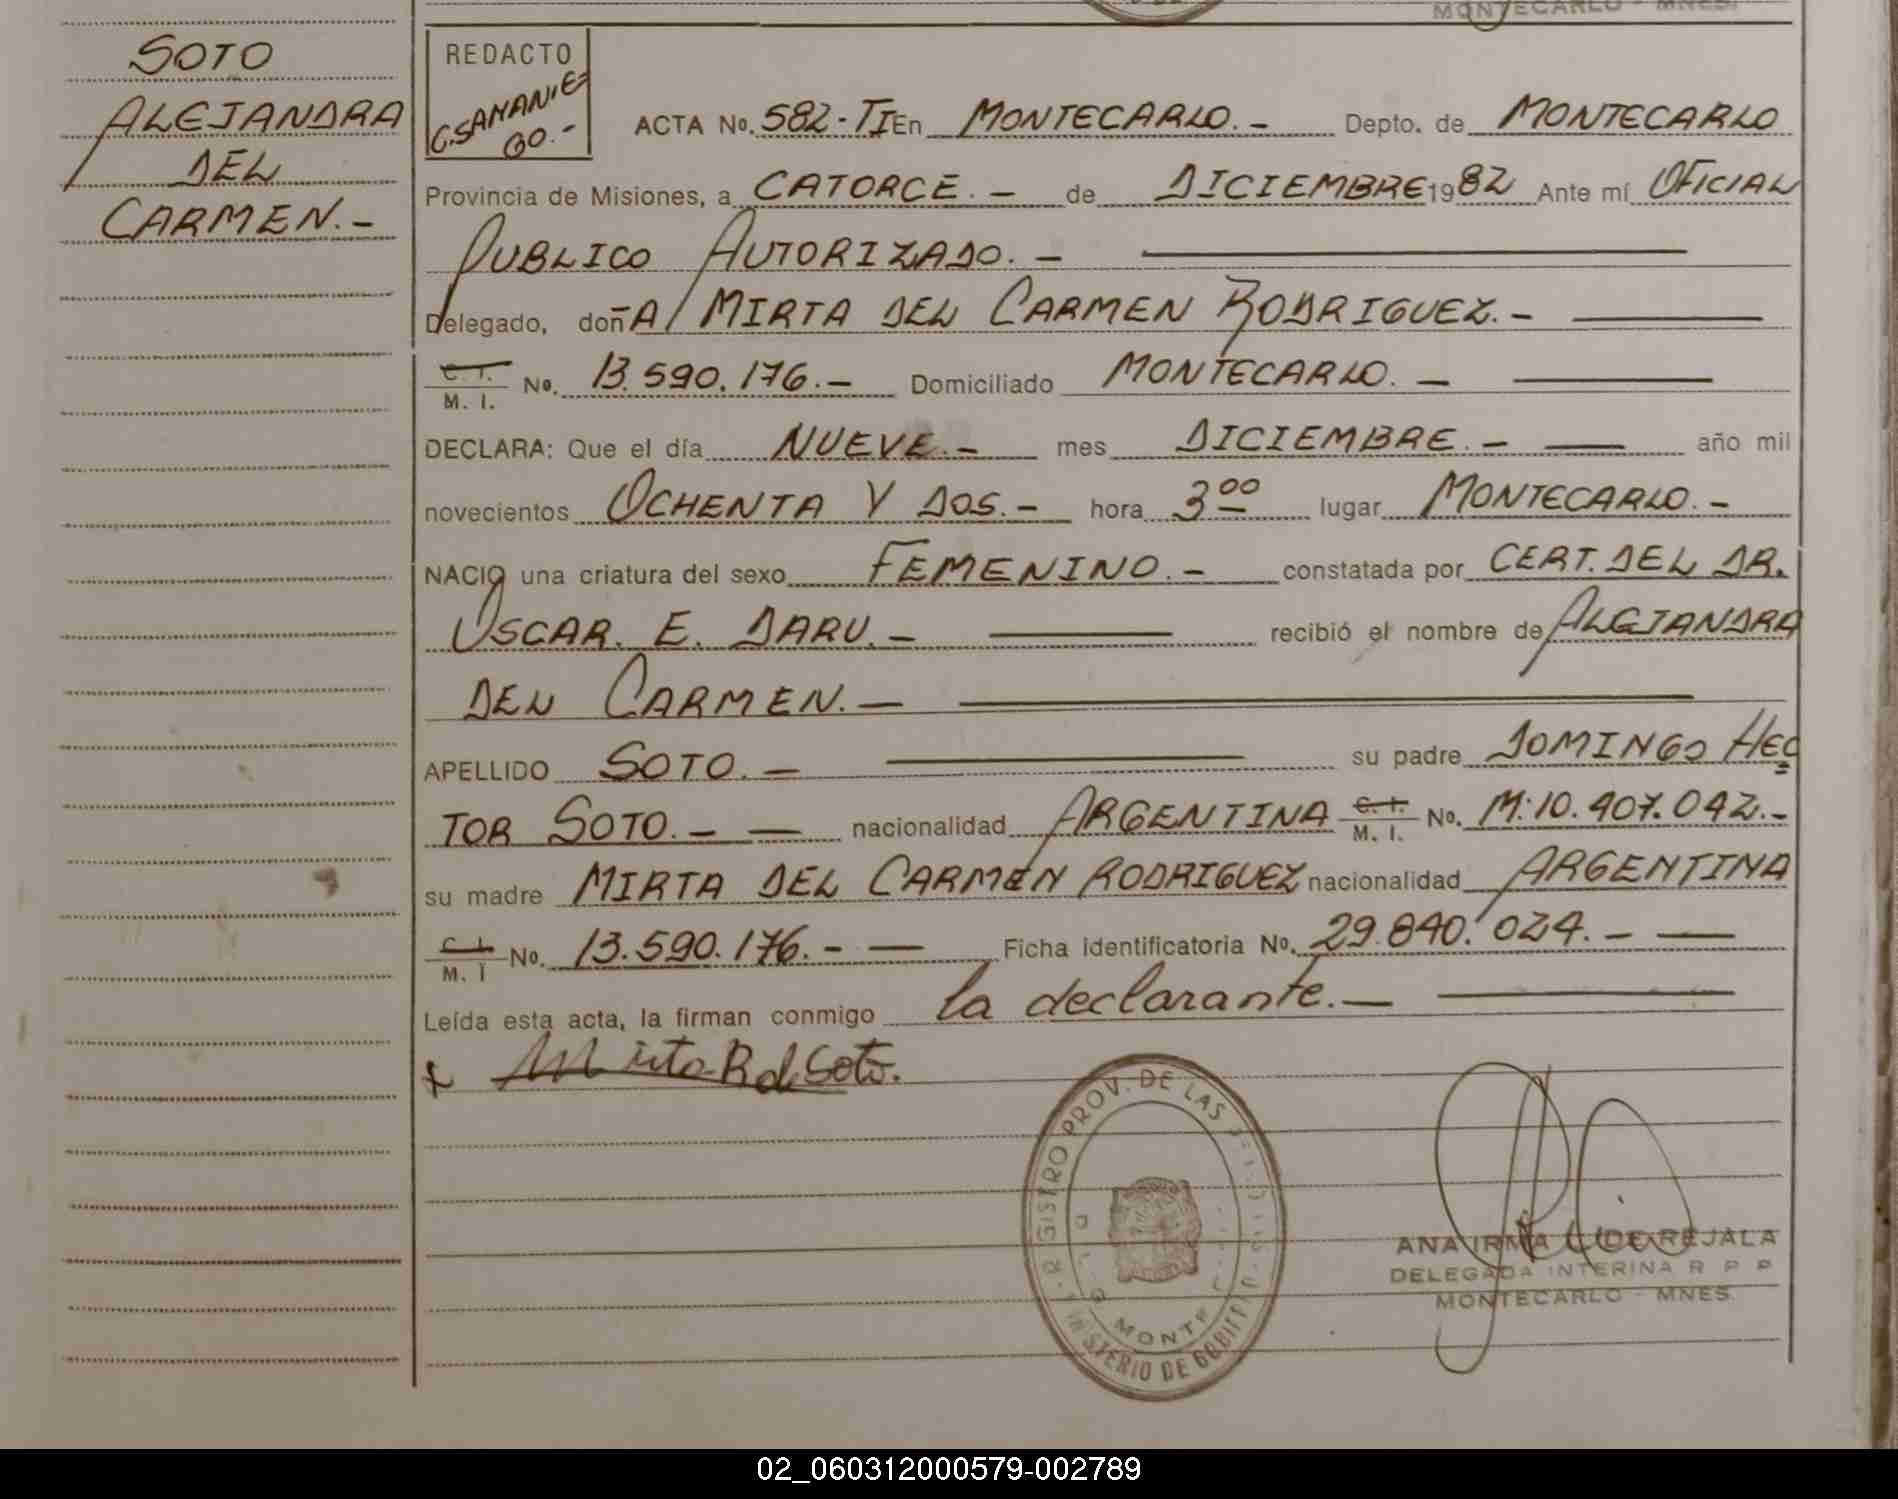 MONTECARLO - MNES.
SOTO
ALEJANDRA
DEL
CARMEN.-
REDACTO
C. SAMANIE=
GO.-
ACTA No. 582-TI En MONTECARLO.- Depto. de MONTECARLO
Provincia de Misiones, a CATORCE.- de DICIEMBRE 1982 Ante mí OFICIAL
PUBLICO AUTORIZADO.-
Delegado, doñA MIRTA DEL CARMEN RODRIGUEZ.-
C. I.
M. I. No. 13.590.176.- Domiciliado MONTECARLO.-
DECLARA: Que el día NUEVE.- mes DICIEMBRE.- año mil
novecientos OCHENTA Y DOS.- hora 3 00 lugar MONTECARLO.-
NACIO una criatura del sexo FEMENINO.- constatada por CERT. DEL DR.
OSCAR. E. DARU.- recibió el nombre de ALEJANDRA
DEL CARMEN.-
APELLIDO SOTO.- su padre DOMINGO HEC=
TOR SOTO.- nacionalidad ARGENTINA C. I. M. I. No. M: 10.407.042.-
su madre MIRTA DEL CARMEN RODRIGUEZ nacionalidad ARGENTINA
C. I.
M. I No. 13.590.176.- Ficha identificatoria No. 29.840.024.-
Leída esta acta, la firman conmigo la declarante.-
x Mirta R de Soto.
REGISTRO PROV. DE LAS
MINISTERIO DE GOBIERNO
MONTE
ANA IRMA DE REJALA
DELEGADA INTERINA R P P
MONTECARLO - MNES.
02_060312000579-002789